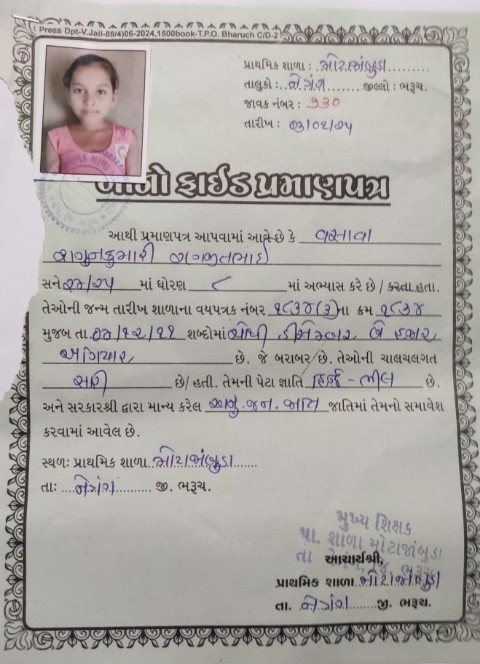 ( Press Dpt-V.Jail-88(4)06-2024,1500book-T.P.O. Bharuch C/D-2
પ્રાથમિક શાળા : મોટાજાંબુડા
તાલુકો : નેત્રંગ જીલ્લો : ભરૂચ.
જાવક નંબર : ૧૩૦
તારીખ : ૨૩/૦૨/૨૫
બોનો ફાઈડ પ્રમાણપત્ર
આથી પ્રમાણપત્ર આપવામાં આવે છે કે વસાવા
શગુનકુમારી
સને ૨૪/૨૫ માં ધોરણ ૮ માં અભ્યાસ કરે છે / કરતા હતા.
તેઓની જન્મ તારીખ શાળાના વયપત્રક નંબર ૧૮૩૪(૩) ના ક્રમ ૧૮૩૪
મુજબ તા. ૦૪/૧૨/૧૧ શબ્દોમાં ચોથી ડીસેમ્બર બે હજાર
અગિયાર છે. જે બરાબર છે. તેઓની ચાલચલગત
સારી છે/ હતી. તેમની પેટા જ્ઞાતિ હિન્દુ - ભીલ છે.
અને સરકારશ્રી દ્વારા માન્ય કરેલ અનુ.જન.જાતિ જાતિમાં તેમનો સમાવેશ
કરવામાં આવેલ છે.
સ્થળ: પ્રાથમિક શાળા મોટાજાંબુડા
તા: નેત્રંગ જી. ભરૂચ.
મુખ્ય શિક્ષક
પ્રા. શાળા મોટાજાંબુડા
તા ભરૂચ
આચાર્યશ્રી,
પ્રાથમિક શાળા મોટાજાંબુડા
તા. નેત્રંગ જી. ભરૂચ.